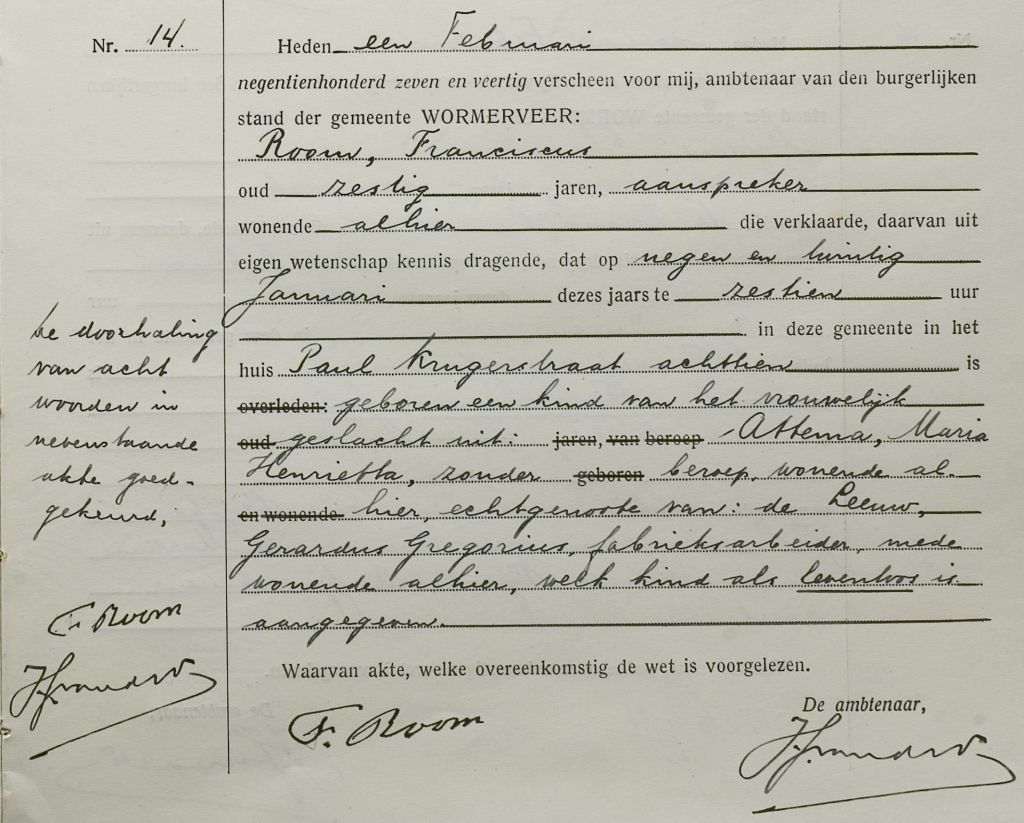 Nr. 14.
Heden een Februari
negentienhonderd zeven en veertig verscheen voor mij, ambtenaar van den burgerlijken
stand der gemeente WORMERVEER:
Room, Franciscus
oud zestig jaren, aanspreker
wonende alhier die verklaarde, daarvan uit
eigen wetenschap kennis dragende, dat op negen en twintig
Januari dezes jaars te zestien uur
in deze gemeente in het
huis Paul Krugerstraat achttien is
overleden: geboren een kind van het vrouwelijk
oud geslacht uit: jaren, van beroep Attema, Maria
Henrietta, zonder geboren beroep, wonende al-
en wonende hier, echtgenoote van: de Leeuw,
Gerardus Gregorius, fabrieksarbeider, mede
wonende alhier, welk kind als levenloos is
aangegeven.
Waarvan akte, welke overeenkomstig de wet is voorgelezen.
De ambtenaar,
F. Room
de doorhaling
van acht
woorden in
nevenstaande
akte goed-
gekeurd;
F. Room